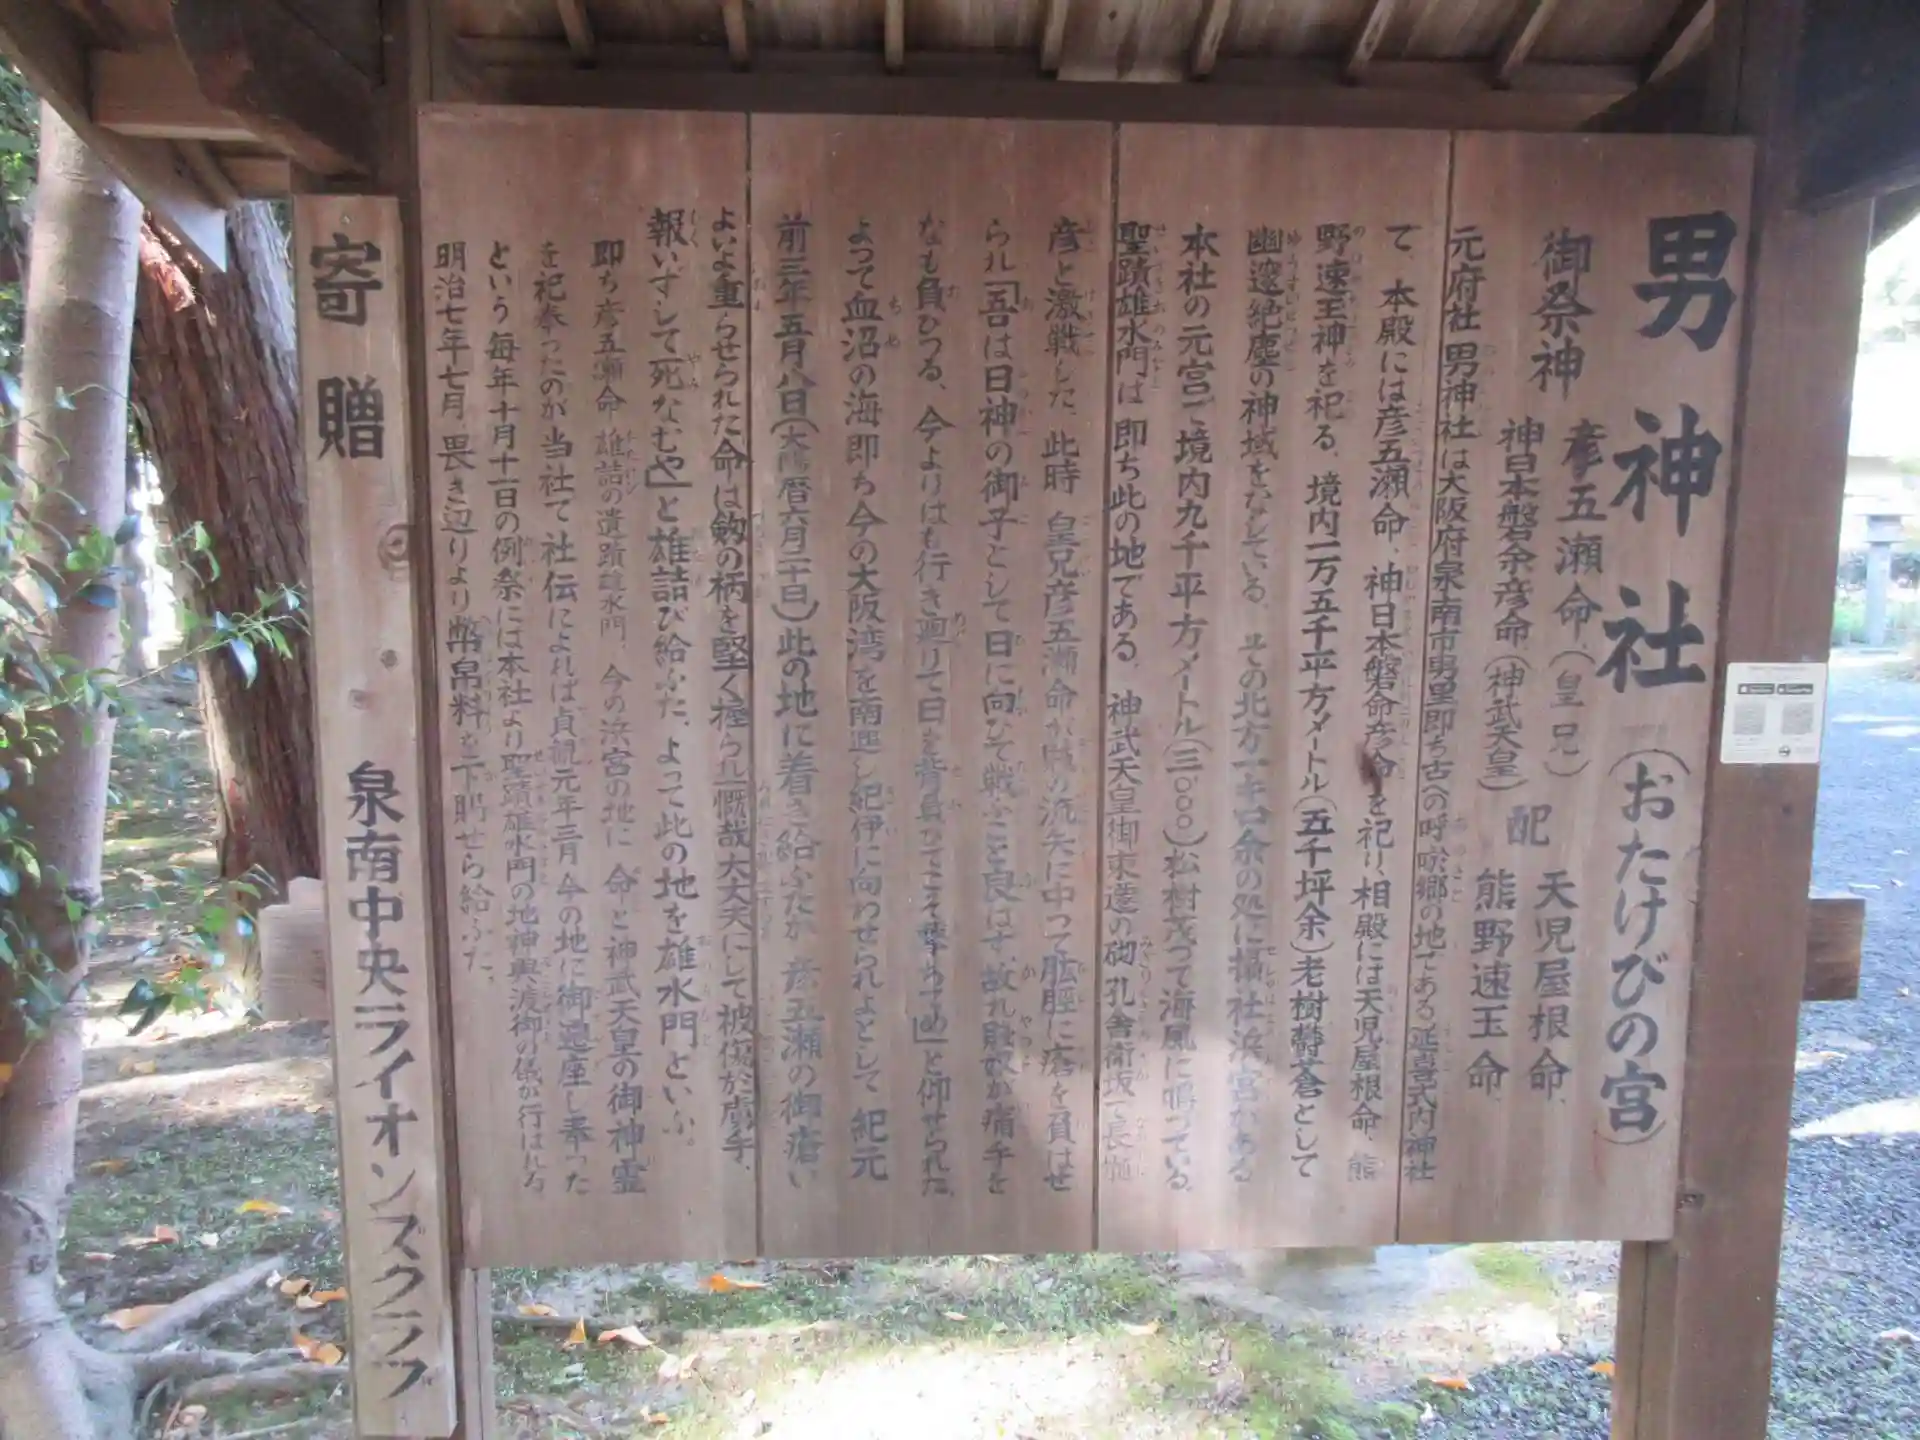 男神社(おたけびの宮)
御祭神 彦五瀬命、(皇兄) 配 天児屋根命、
神日本磐余彦命、(神武天皇) 熊野速玉命、
元府社男神社は大阪府泉南市男里即ち古への呼唹郷の地である 延喜式内神社
て、本殿には彦五瀬命、神日本磐余彦命を祀り、相殿には天児屋根命、熊
野速玉神を祀る、境内一万五千平方メートル(五千坪余)老樹欝蒼として
幽邃絶塵の神域をなしている、その北方一キロ余の処に摂社浜宮がある
本社の元宮で境内九千平方メートル(三、〇〇〇)松樹茂って海風に鳴っている、
聖蹟雄水門は 即ち此の地である、神武天皇御東遷の砌 孔舎衛坂で長髄
彦と激戦した、此時 皇兄彦五瀬命が賊の流矢に中って肱脛に瘡を負はせ
られ「吾は日神の御子として日に向ひて戦ふこと良はず、故れ賎奴が痛手を
なも負ひつる、今よりはも行き廻りて日を背負ひてこそ撃ちてめ」と仰せられた、
よって血沼の海即ち今の大阪湾を南進し紀伊に向わせられよとして 紀元
前三年五月八日(太陽暦六月二十日)此の地に着き給ふたが 彦五瀬の御瘡い
よいよ重らせられた、命は劔の柄を堅く握られ「慨哉大丈夫にして被傷於虜手、
報いずして死なむや」と雄詰び給ふた、よって此の地を雄水門といふ。
即ち彦五瀬命 雄詰の遺蹟雄水門、今の浜宮の地に 命と神武天皇の御神霊
を祀奉ったのが当社て社伝によれば貞観元年三月今の地に御遷座し奉った
という毎年十月十一日の例祭には本社より聖蹟雄水門の地神輿渡御の儀が行はれる
明治七年七月、畏き辺りより幣帛料を下賜せら給ふた、
寄贈 泉南中央ライオンズクラブ